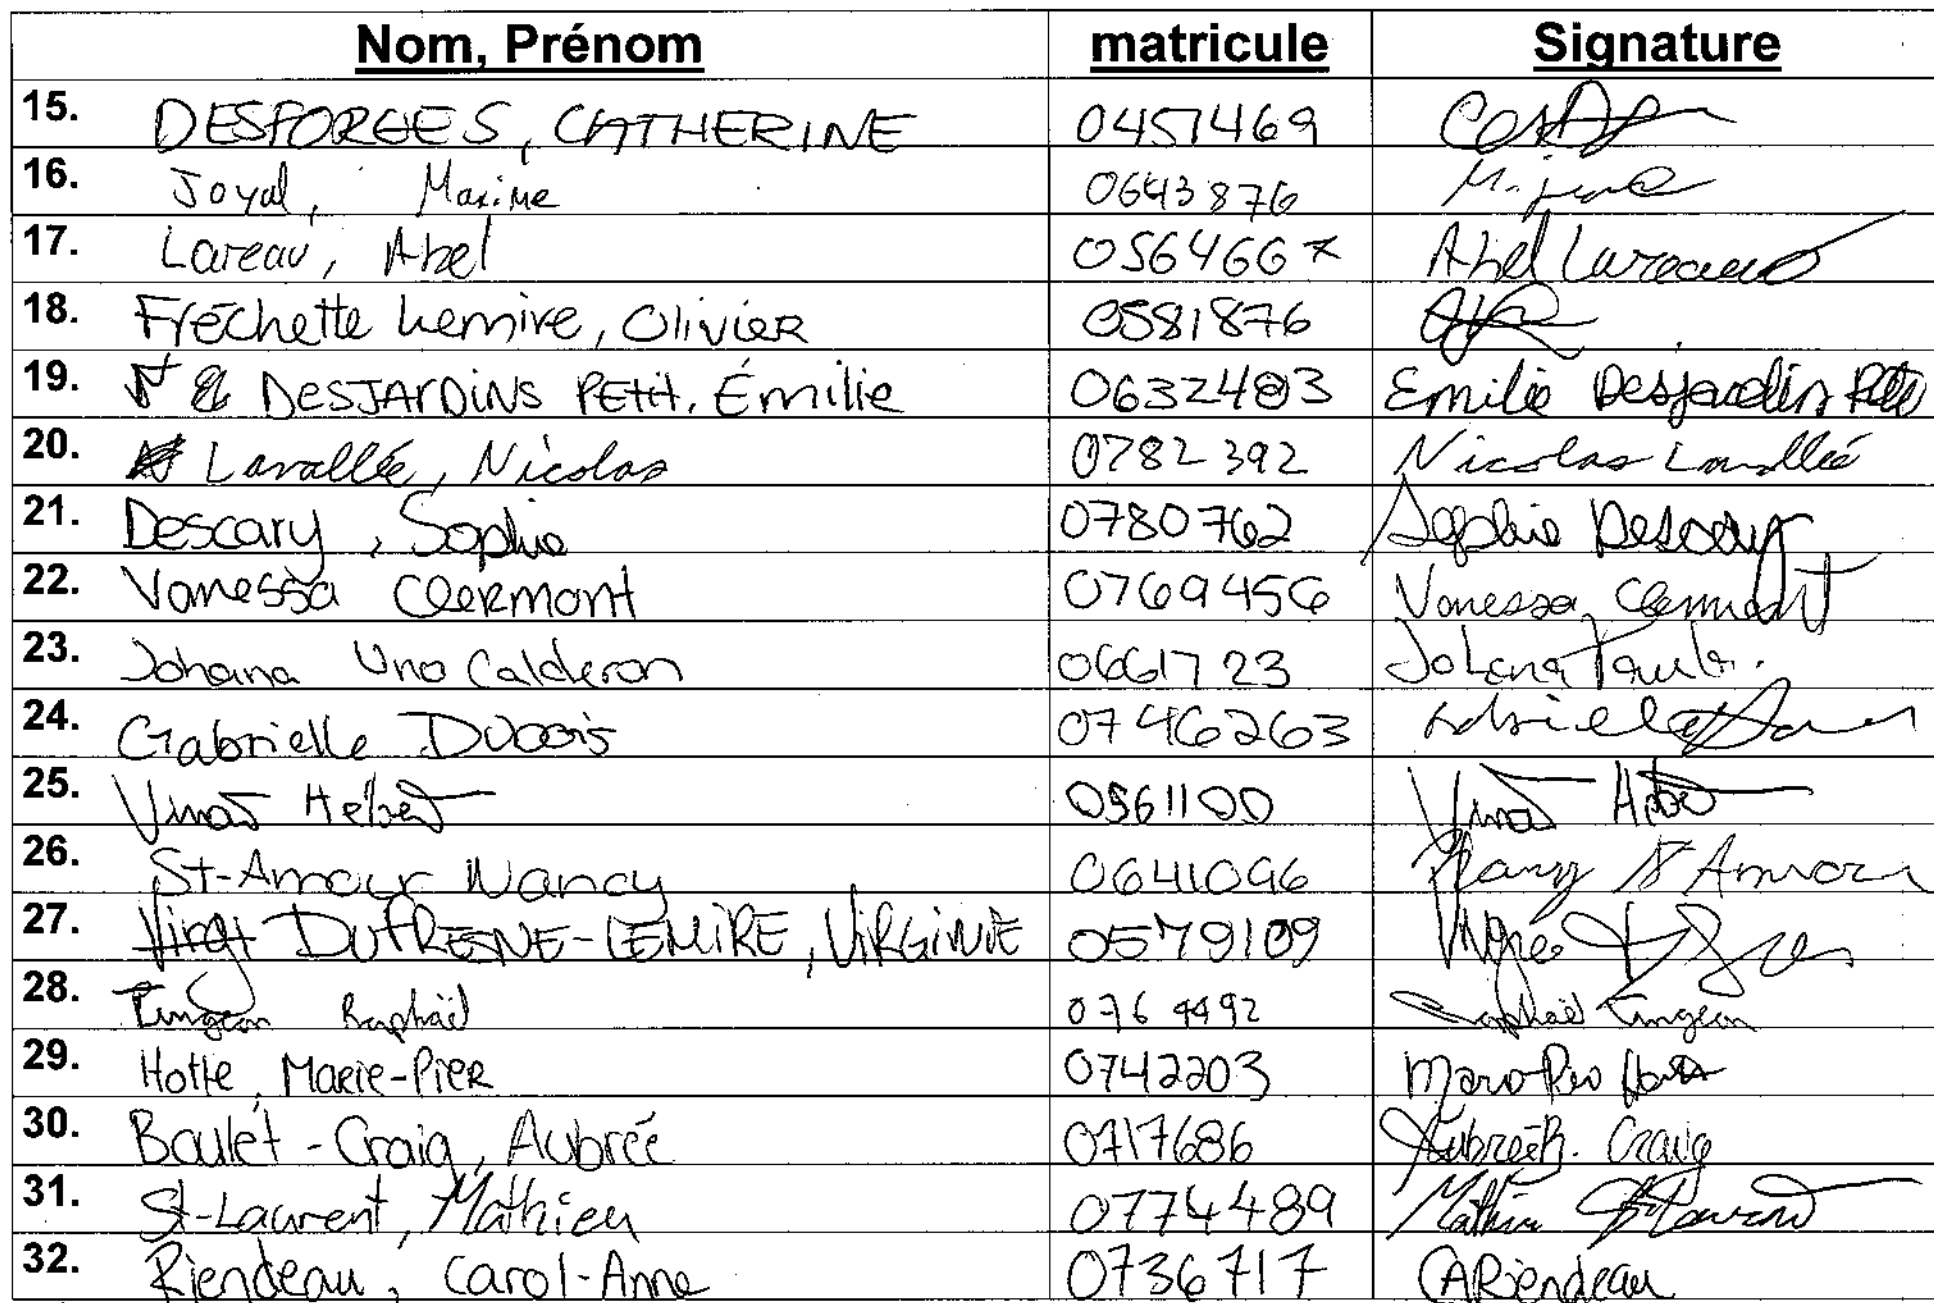 Nom, Prénom matricule Signature
15. DESFORGES, CATHERINE 0457469
16. Joyal, Maxime 0643876
17. Lareau, Abel 0564667 Abel Lareau
18. Fréchette Lemire, Olivier 0581876
19. DESJARDINS PETIT, Émilie 0632483 Emilie Desjardins Petit
20. Lavallée, Nicolas 0782392 Nicolas Lavallée
21. Descary, Sophie 0780762 Sophie Descary
22. Vanessa Clermont 0769456 Vanessa Clermont
23. Johana Uno Calderon 0661723 Johana
24. Gabrielle Dubois 07462263 Gabrielle
25. Hebert 0561100
26. St-Amour Nancy 0641096 Nancy St Amour
27. DUFRESNE-LEMIRE, VIRGINIE 0579109
28. Raphaël 0764492 Raphaël
29. Hotte, Marie-Pier 0742203 Marie-Pier Hotte
30. Boulet-Craig, Aubrée 0717686 Aubrée B. Craig
31. St-Laurent, Mathieu 0774489 Mathieu St-Laurent
32. Riendeau, Carol-Anne 0736717 CARiendeau